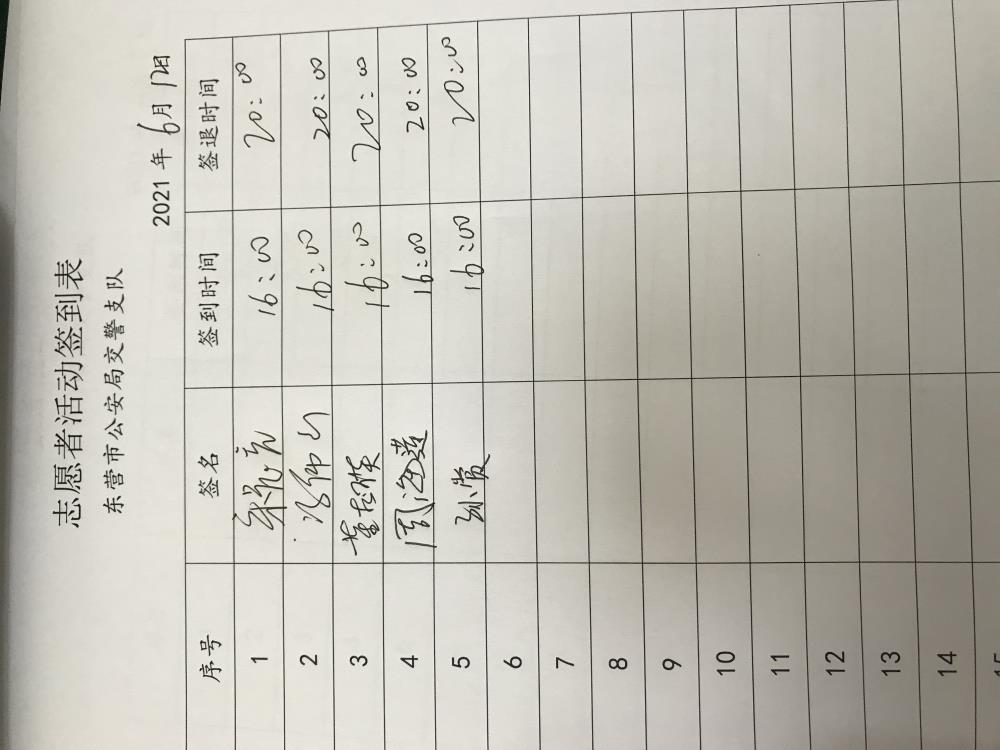 志愿者活动签到表
东营市公安局交警支队
2021 年 6月 17日
序号 签名 签到时间 签退时间
1 16:00 20:00
2 16:00 20:00
3 16:00 20:00
4 周海莲 16:00 20:00
5 16:00 20:00
6
7
8
9
10
11
12
13
14
15